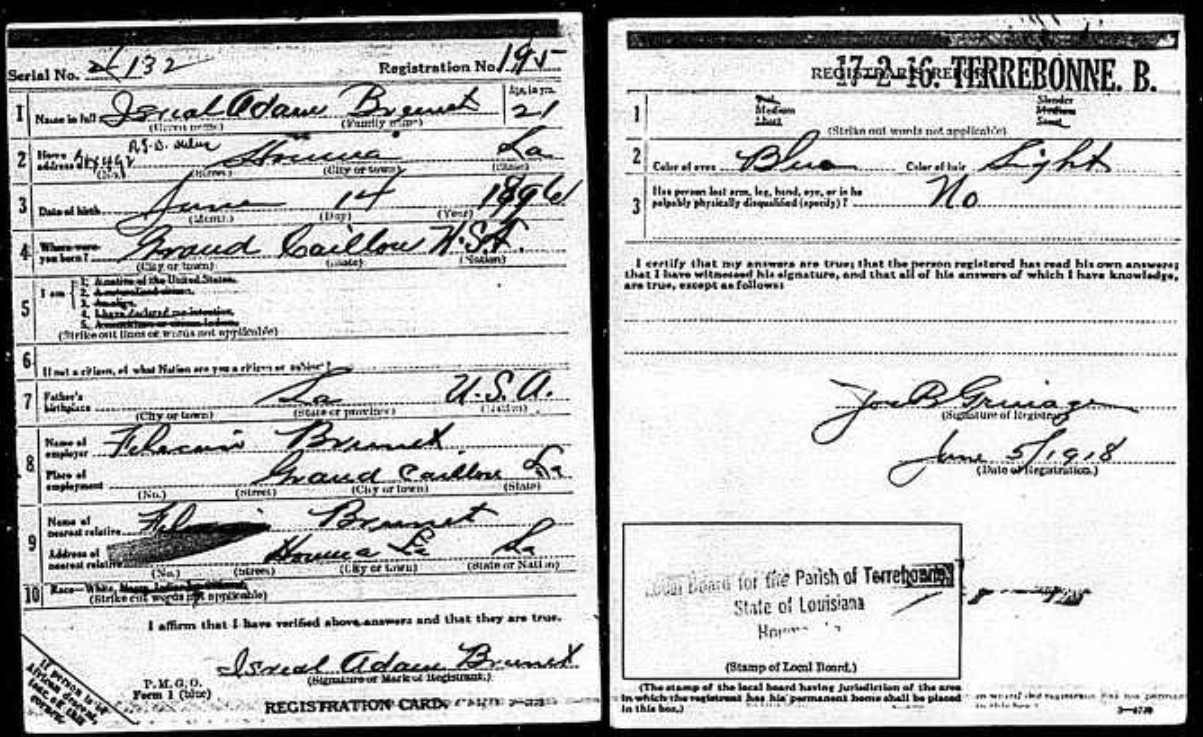 Serial No. 132 Registration No. 195
1 Name in full Isreal Adam Brunet Age, in yrs. 21
(Given name) (Family name)
2 Home address Houma La
(No.) (Street) (City or town) (State)
3 Date of birth June 14 1896
(Month) (Day) (Year)
4 Where were you born? Grand Caillou U.S.A.
(City or town) (State) (Nation)
5 I am
1. A native of the United States.
2. A naturalized citizen.
3. An alien.
4. I have declared my intention.
5.
(Strike out lines or words not applicable)
6 If not a citizen, of what Nation are you a citizen or subject?
7 Father's birthplace La U.S.A.
(City or town) (State or province) (Nation)
8 Name of employer Brunet
Place of employment Grand Caillou La
(No.) (Street) (City or town) (State)
9 Name of nearest relative Brunet
Address of nearest relative Houma La La
(No.) (Street) (City or town) (State or Nation)
10 Race—White,
(Strike out words not applicable)
I affirm that I have verified above answers and that they are true.
Isreal Adam Brunet
(Signature or Mark of Registrant.)
P. M. G. O.
Form 1 (blue)
REGISTRATION CARD.
If person is of African descent, tear off this corner.
REGISTRAR'S REPORT
17-2-16. TERREBONNE. B.
1 Tall Slender
Medium Medium
Short Stout
(Strike out words not applicable)
2 Color of eyes Blue Color of hair Light
3 Has person lost arm, leg, hand, eye, or is he
palpably physically disqualified (specify)? No
I certify that my answers are true; that the person registered has read his own answers;
that I have witnessed his signature, and that all of his answers of which I have knowledge,
are true, except as follows:
Joe B
(Signature of Registrar)
June 5/1918
(Date of Registration.)
Local Board for the Parish of Terrebonne
State of Louisiana
Houma
(Stamp of Local Board.)
(The stamp of the local board having jurisdiction of the area
in which the registrant has his permanent home shall be placed
in this box.)